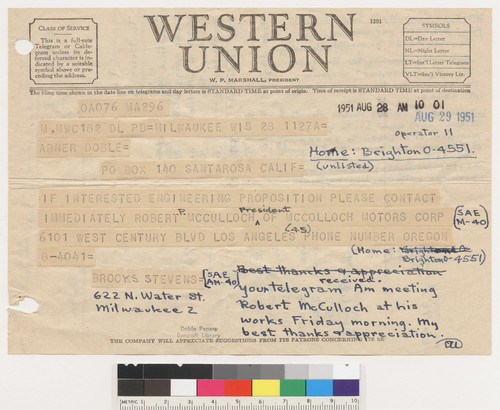 CLASS OF SERVICE
This is a full-rate
Telegram or Cable-
gram unless its de-
ferred character is in-
dicated by a suitable
symbol above or pre-
ceding the address.
WESTERN
UNION
1201
W. P. MARSHALL, PRESIDENT
SYMBOLS
DL=Day Letter
NL=Night Letter
LT=Int'l Letter Telegram
VLT=Int'l Victory Ltr.
The filing time shown in the date line on telegrams and day letters is STANDARD TIME at point of origin. Time of receipt is STANDARD TIME at point of destination
OA076 WA296
1951 AUG 28 AM 10 01
AUG 29 1951
M.MWC182 DL PD=MILWAUKEE WIS 28 1127A=
operator 11
ABNER DOBLE=
Home: Brighton 0-4551.
PO BOX 140 SANTAROSA CALIF=
(unlisted)
IF INTERESTED ENGINEERING PROPOSITION PLEASE CONTACT
P. President
IMMEDIATELY ROBERT MCCULLOCH OF MCCOLLOCH MOTORS CORP
(SAE
M-40)
(45)
6101 WEST CENTURY BLVD LOS ANGELES PHONE NUMBER OREGON
(Home:
Brighton 0-4551)
8-4041=
BROOKS STEVENS=
(SAE
AM-40)
Best thanks & appreciation
received.
622 N. Water St.
Milwaukee 2
your telegram Am meeting
Robert McCulloch at his
works Friday morning. My
best thanks & appreciation.
Doble Papers
Bancroft Library
THE COMPANY WILL APPRECIATE SUGGESTIONS FROM ITS PATRONS CONCERNING ITS SERVICE
METRIC 1 2 3 4 5 6 7 8 9 10